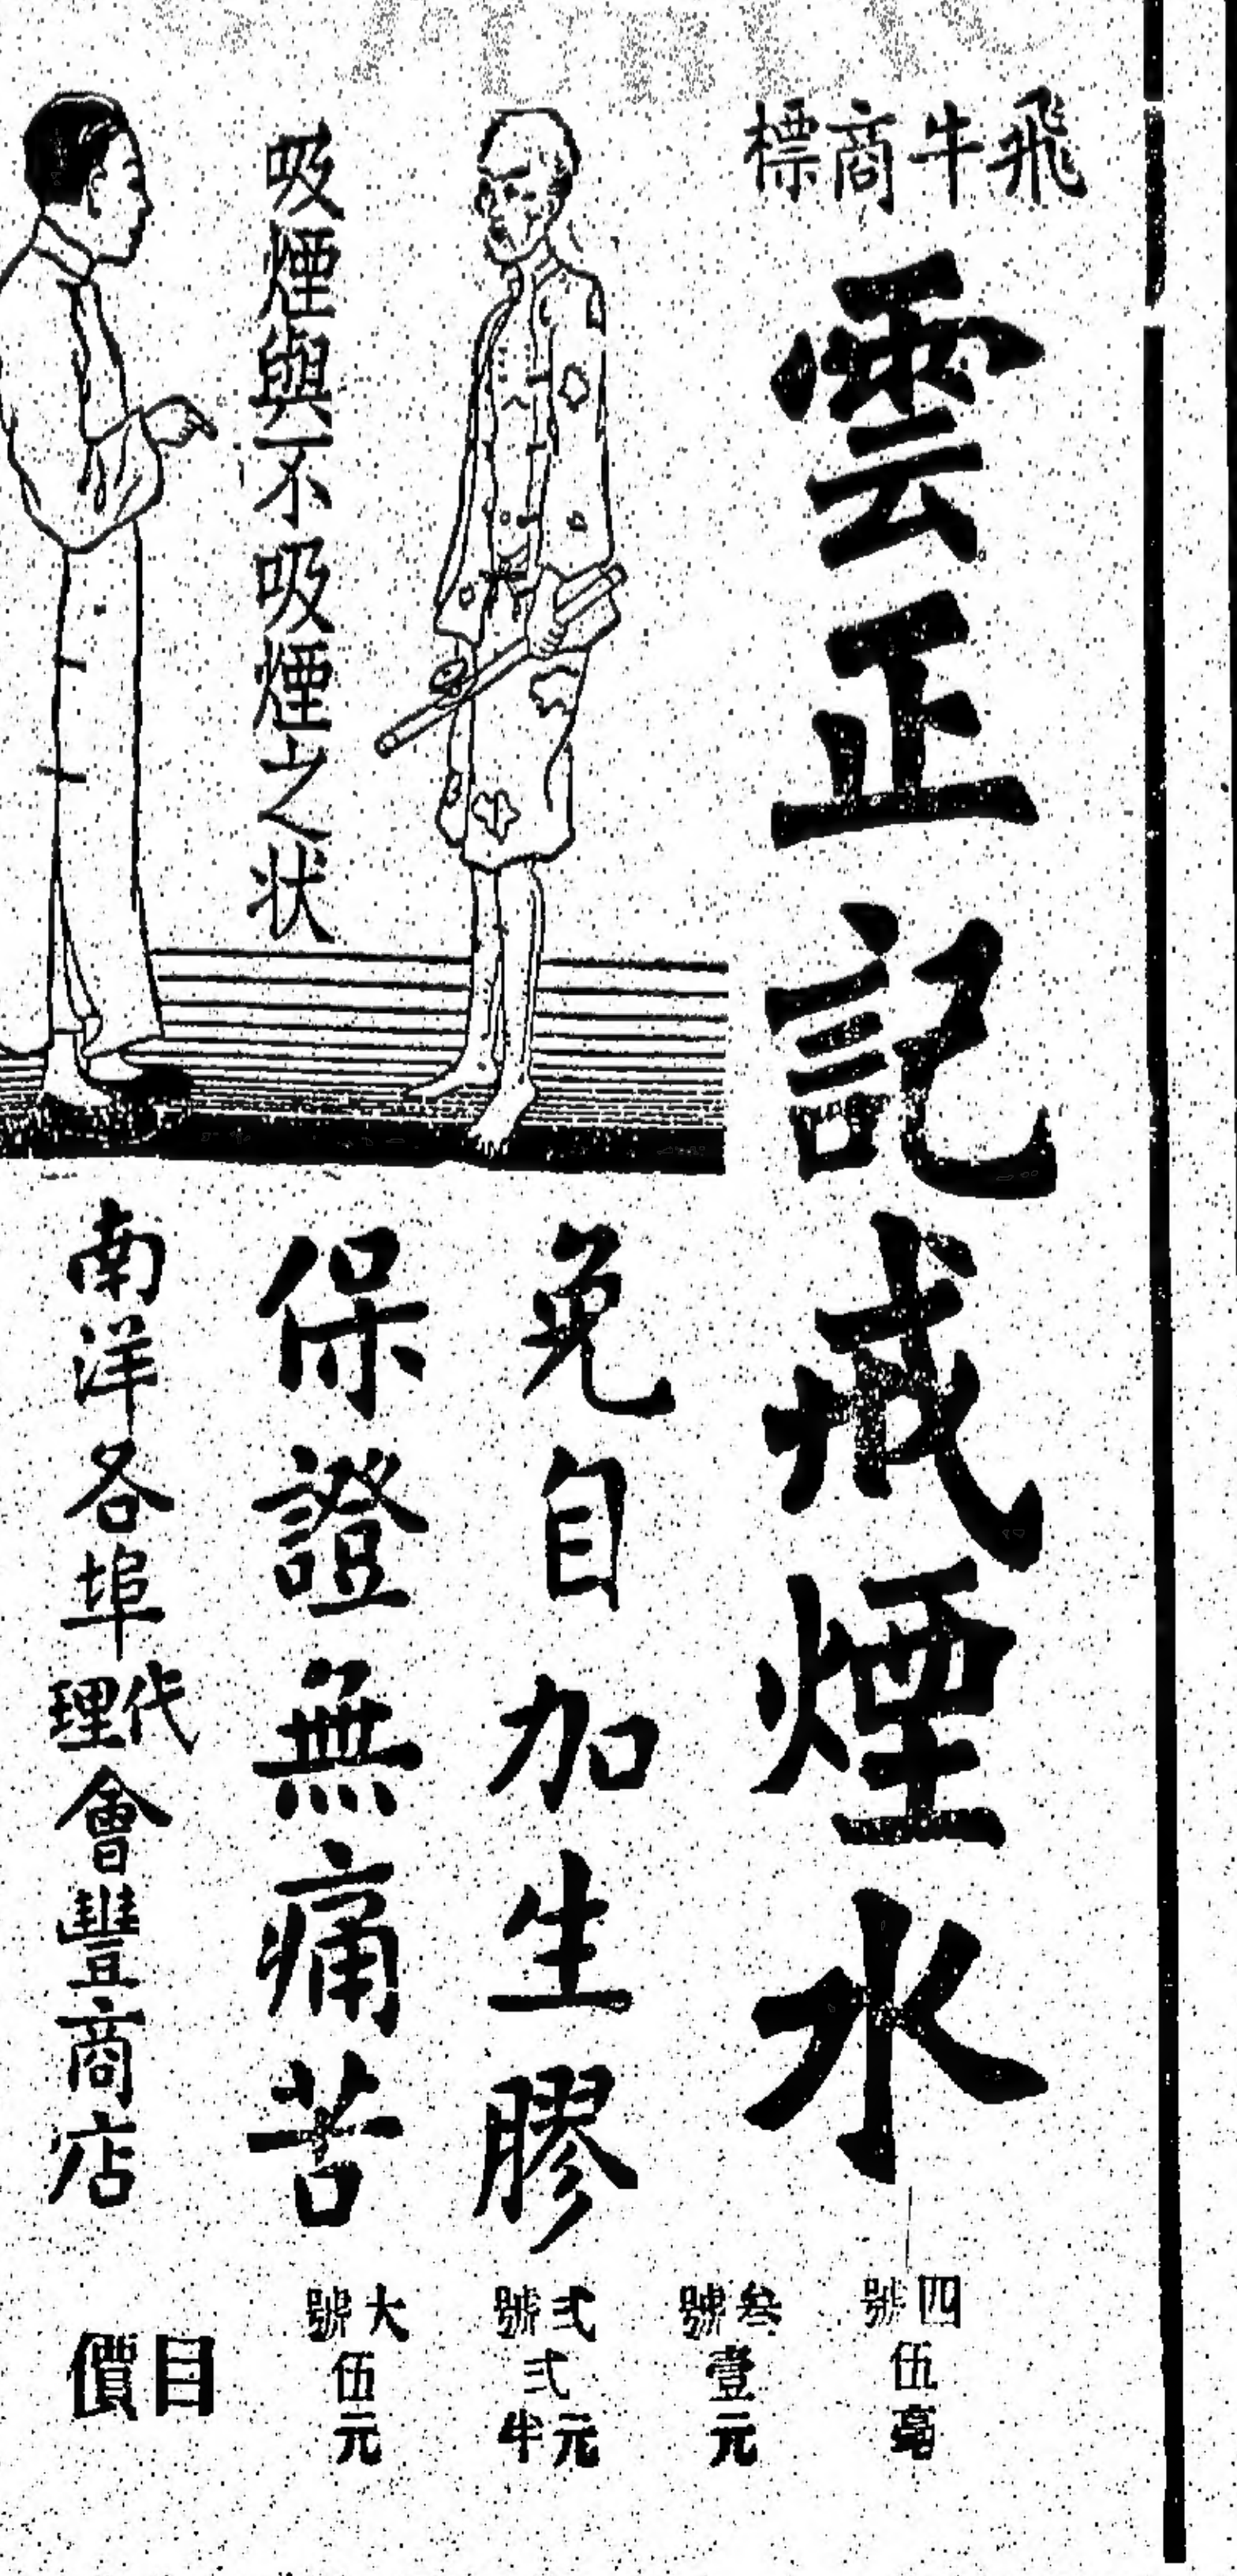 飛牛商標
雲正記戒煙水
吸煙與不吸煙之状
免自加生膠
保證無痛苦
南洋各埠代理會豐商店
四號伍毫
叁號壹元
弍號弍元半
大號伍元
目價